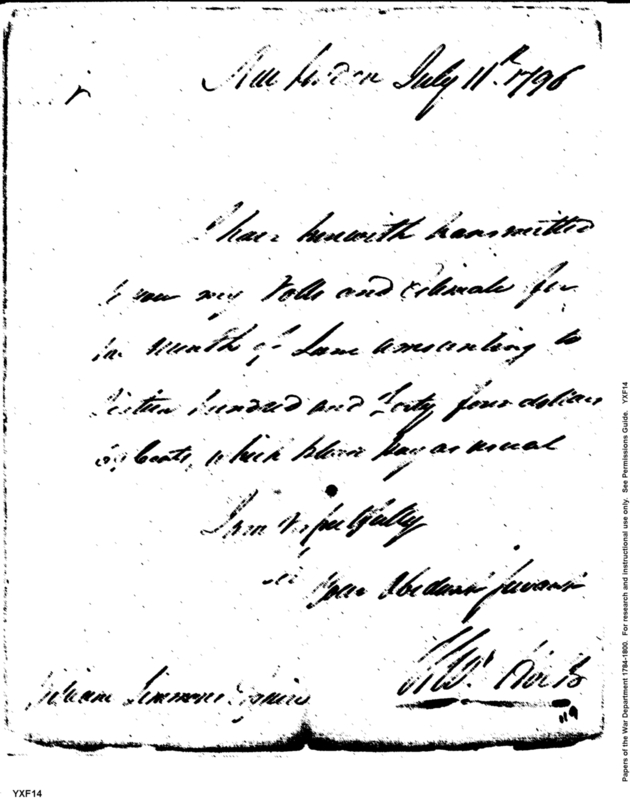 New London July 11th. 1796
Sir
I have herewith transmitted
to you my Rolls and Estimate for
the Month of June amounting to
Sixteen hundred and Forty four dollars
Cents, which please pay as usual
I am respectfully
Sir
Your Obedient Servant
William Simmons Esquire
119
Papers of the War Department 1784-1800. For research and instructional use only. See Permissions Guide. YXF14
YXF14